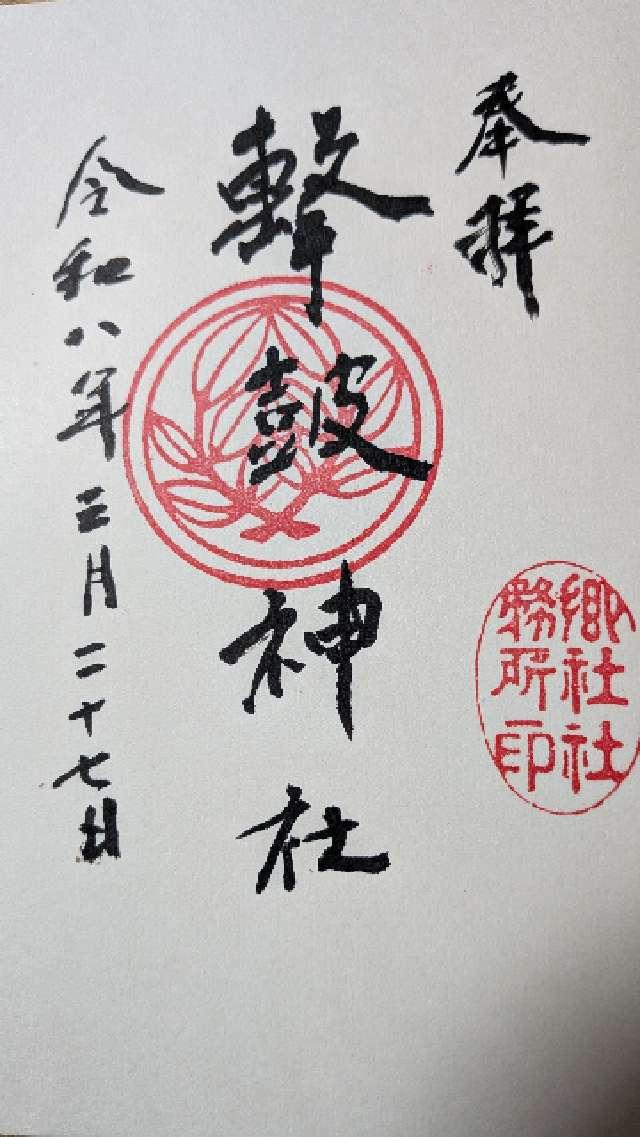 奉拝
撃皷神社
令和八年三月二十七日
郷社社
務所印